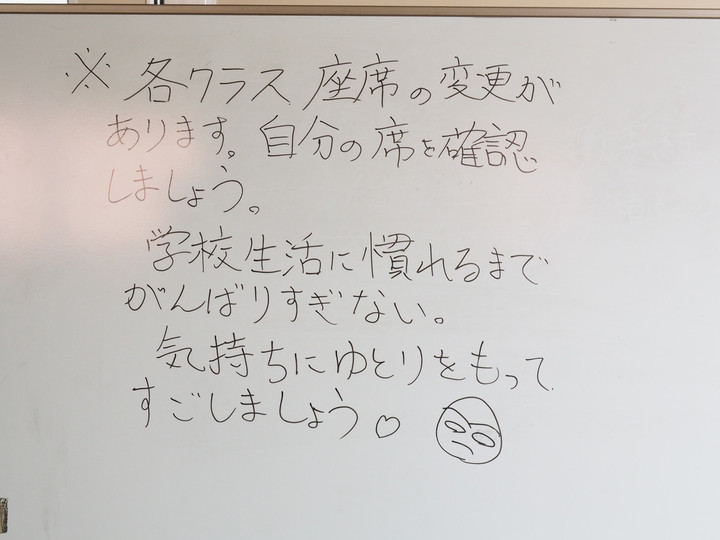 ※ 各クラス 座席の変更が
あります。自分の席を確認
しましょう。
学校生活に慣れるまで
がんばりすぎない。
気持ちにゆとりをもって
すごしましょう♡